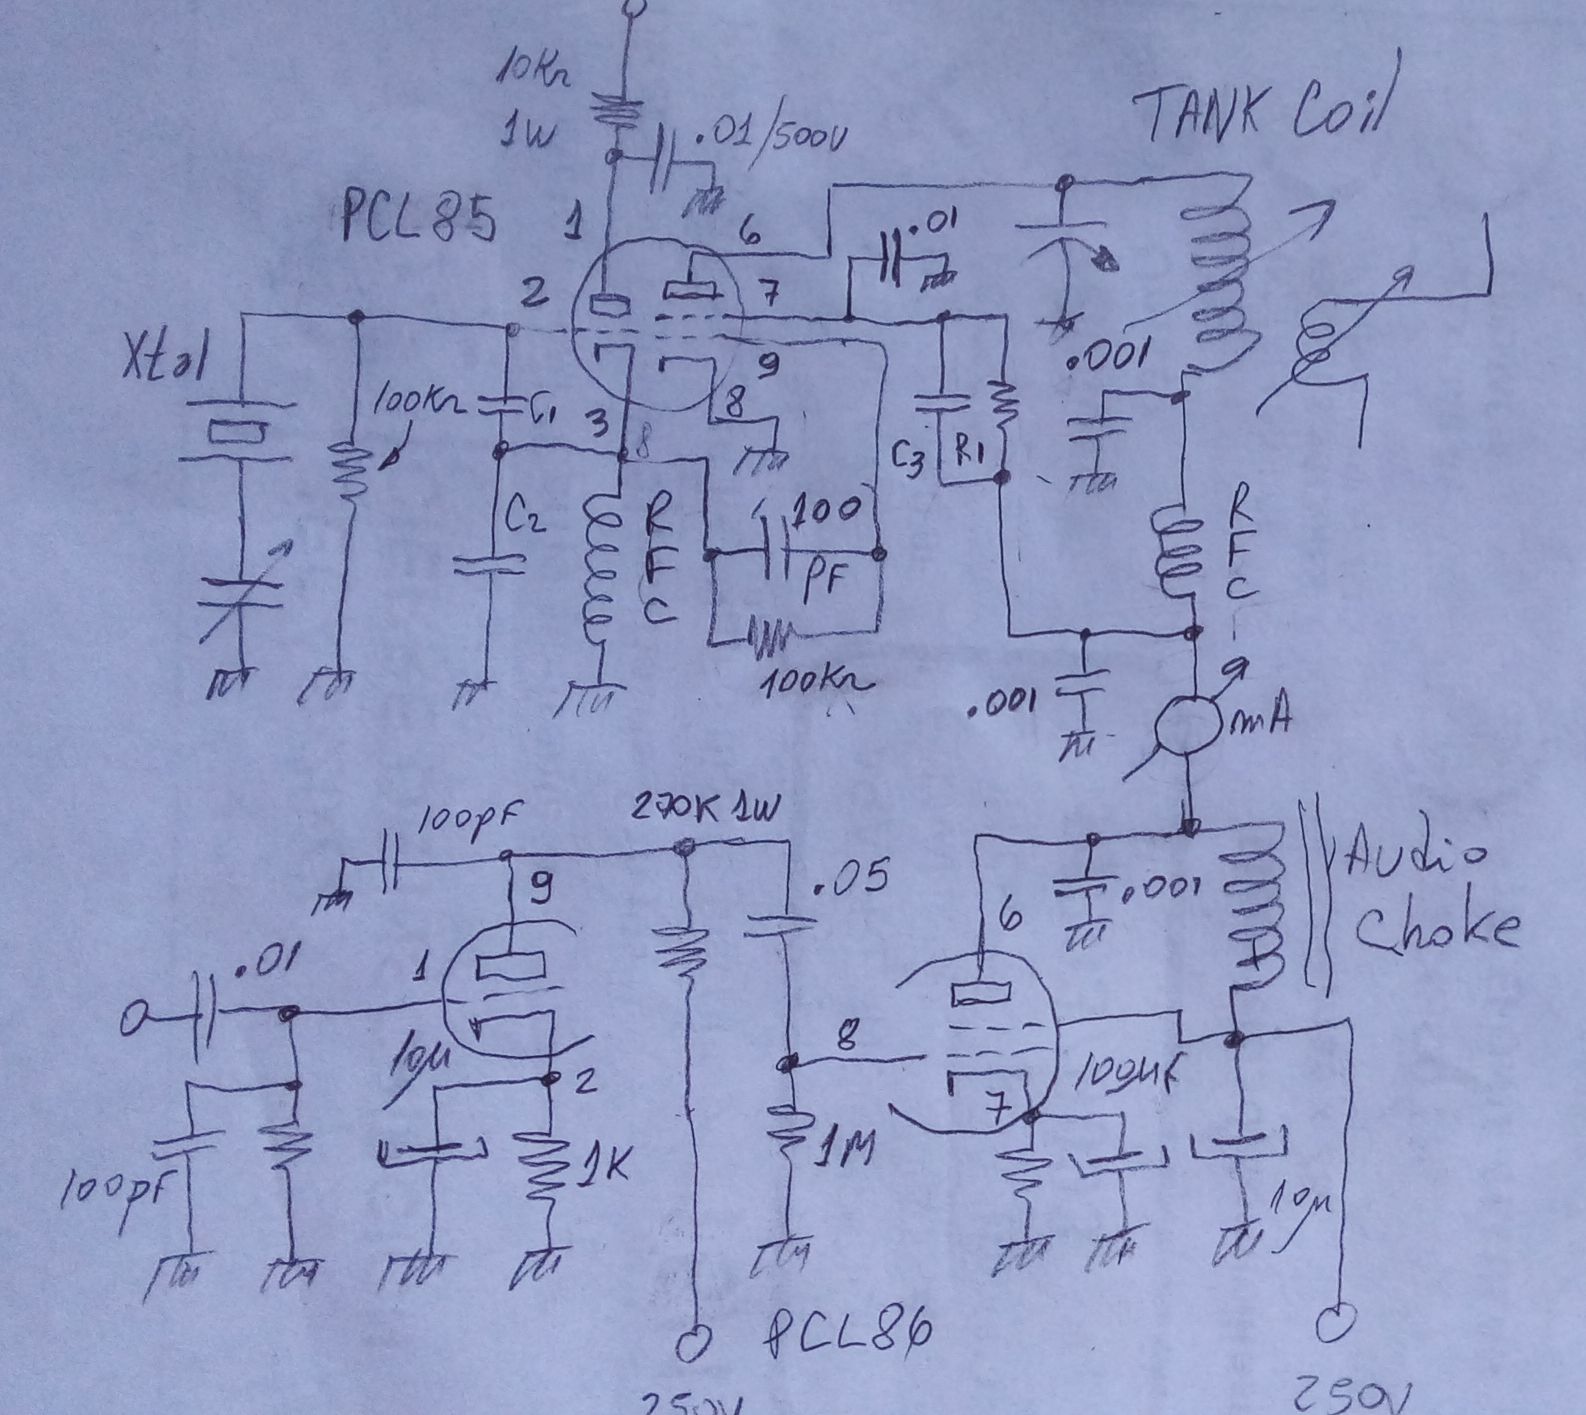 10KΩ
1W
.01/500V
TANK Coil
PCL85
1
6
.01
2
7
Xtal
.001
9
100KΩ
C1
3
8
8
C3
R1
C2
RFC
100
PF
RFC
100KΩ
.001
mA
100pF
270K 1W
.05
.001
Audio
Choke
9
6
.01
1
10µ
8
100µF
2
7
100pF
1K
1M
10µ
PCL86
250V
250V